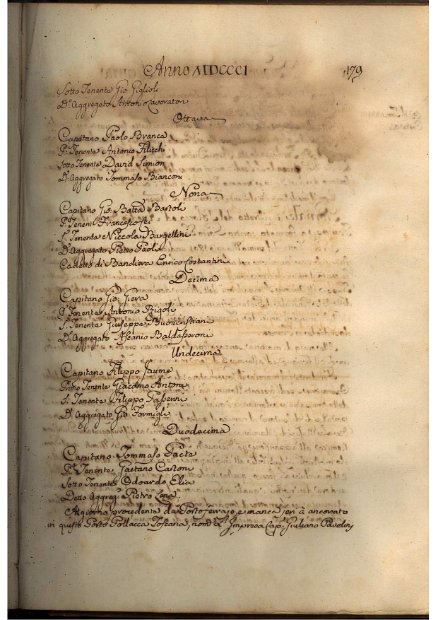 Anno MDCCCI
179
Sotto Tenente Gio Giglioli
D.º Aggregato Antonio Lavoratori
Ottava
Capitano Paolo Branca
P. Tenente Antonio Filichi
Sotto Tenente David Simion
D.º Aggregato Tommaso Bianconi
Nona
Capitano Gio Batta Bartoli
P. Tenente Francesco
S. Tenente Niccola Bargellini
D.º Aggregato Pietro Paoli
Cadetto di Bandiera Enrico Costantini
Decima
Capitano Gio Giera
P. Tenente Antonio Rigoli
S. Tenente Giuseppe
D.º Aggregato Ascanio Baldasseroni
Undecima
Capitano Filippo Jaume
Primo Tenente Giacomo Antoni
S. Tenente Filippo
D.º Aggregato Gio
Duodecima
Capitano Tommaso Paeta
P. Tenente Gaetano Castoni
Sotto Tenente Odoardo Elia
Detto Aggreg. Pietro
proveniente da Porto Ferrajo, e manca jeri à ancorato
in questo Porto Pollacca Toscana, Cap. Giuliano